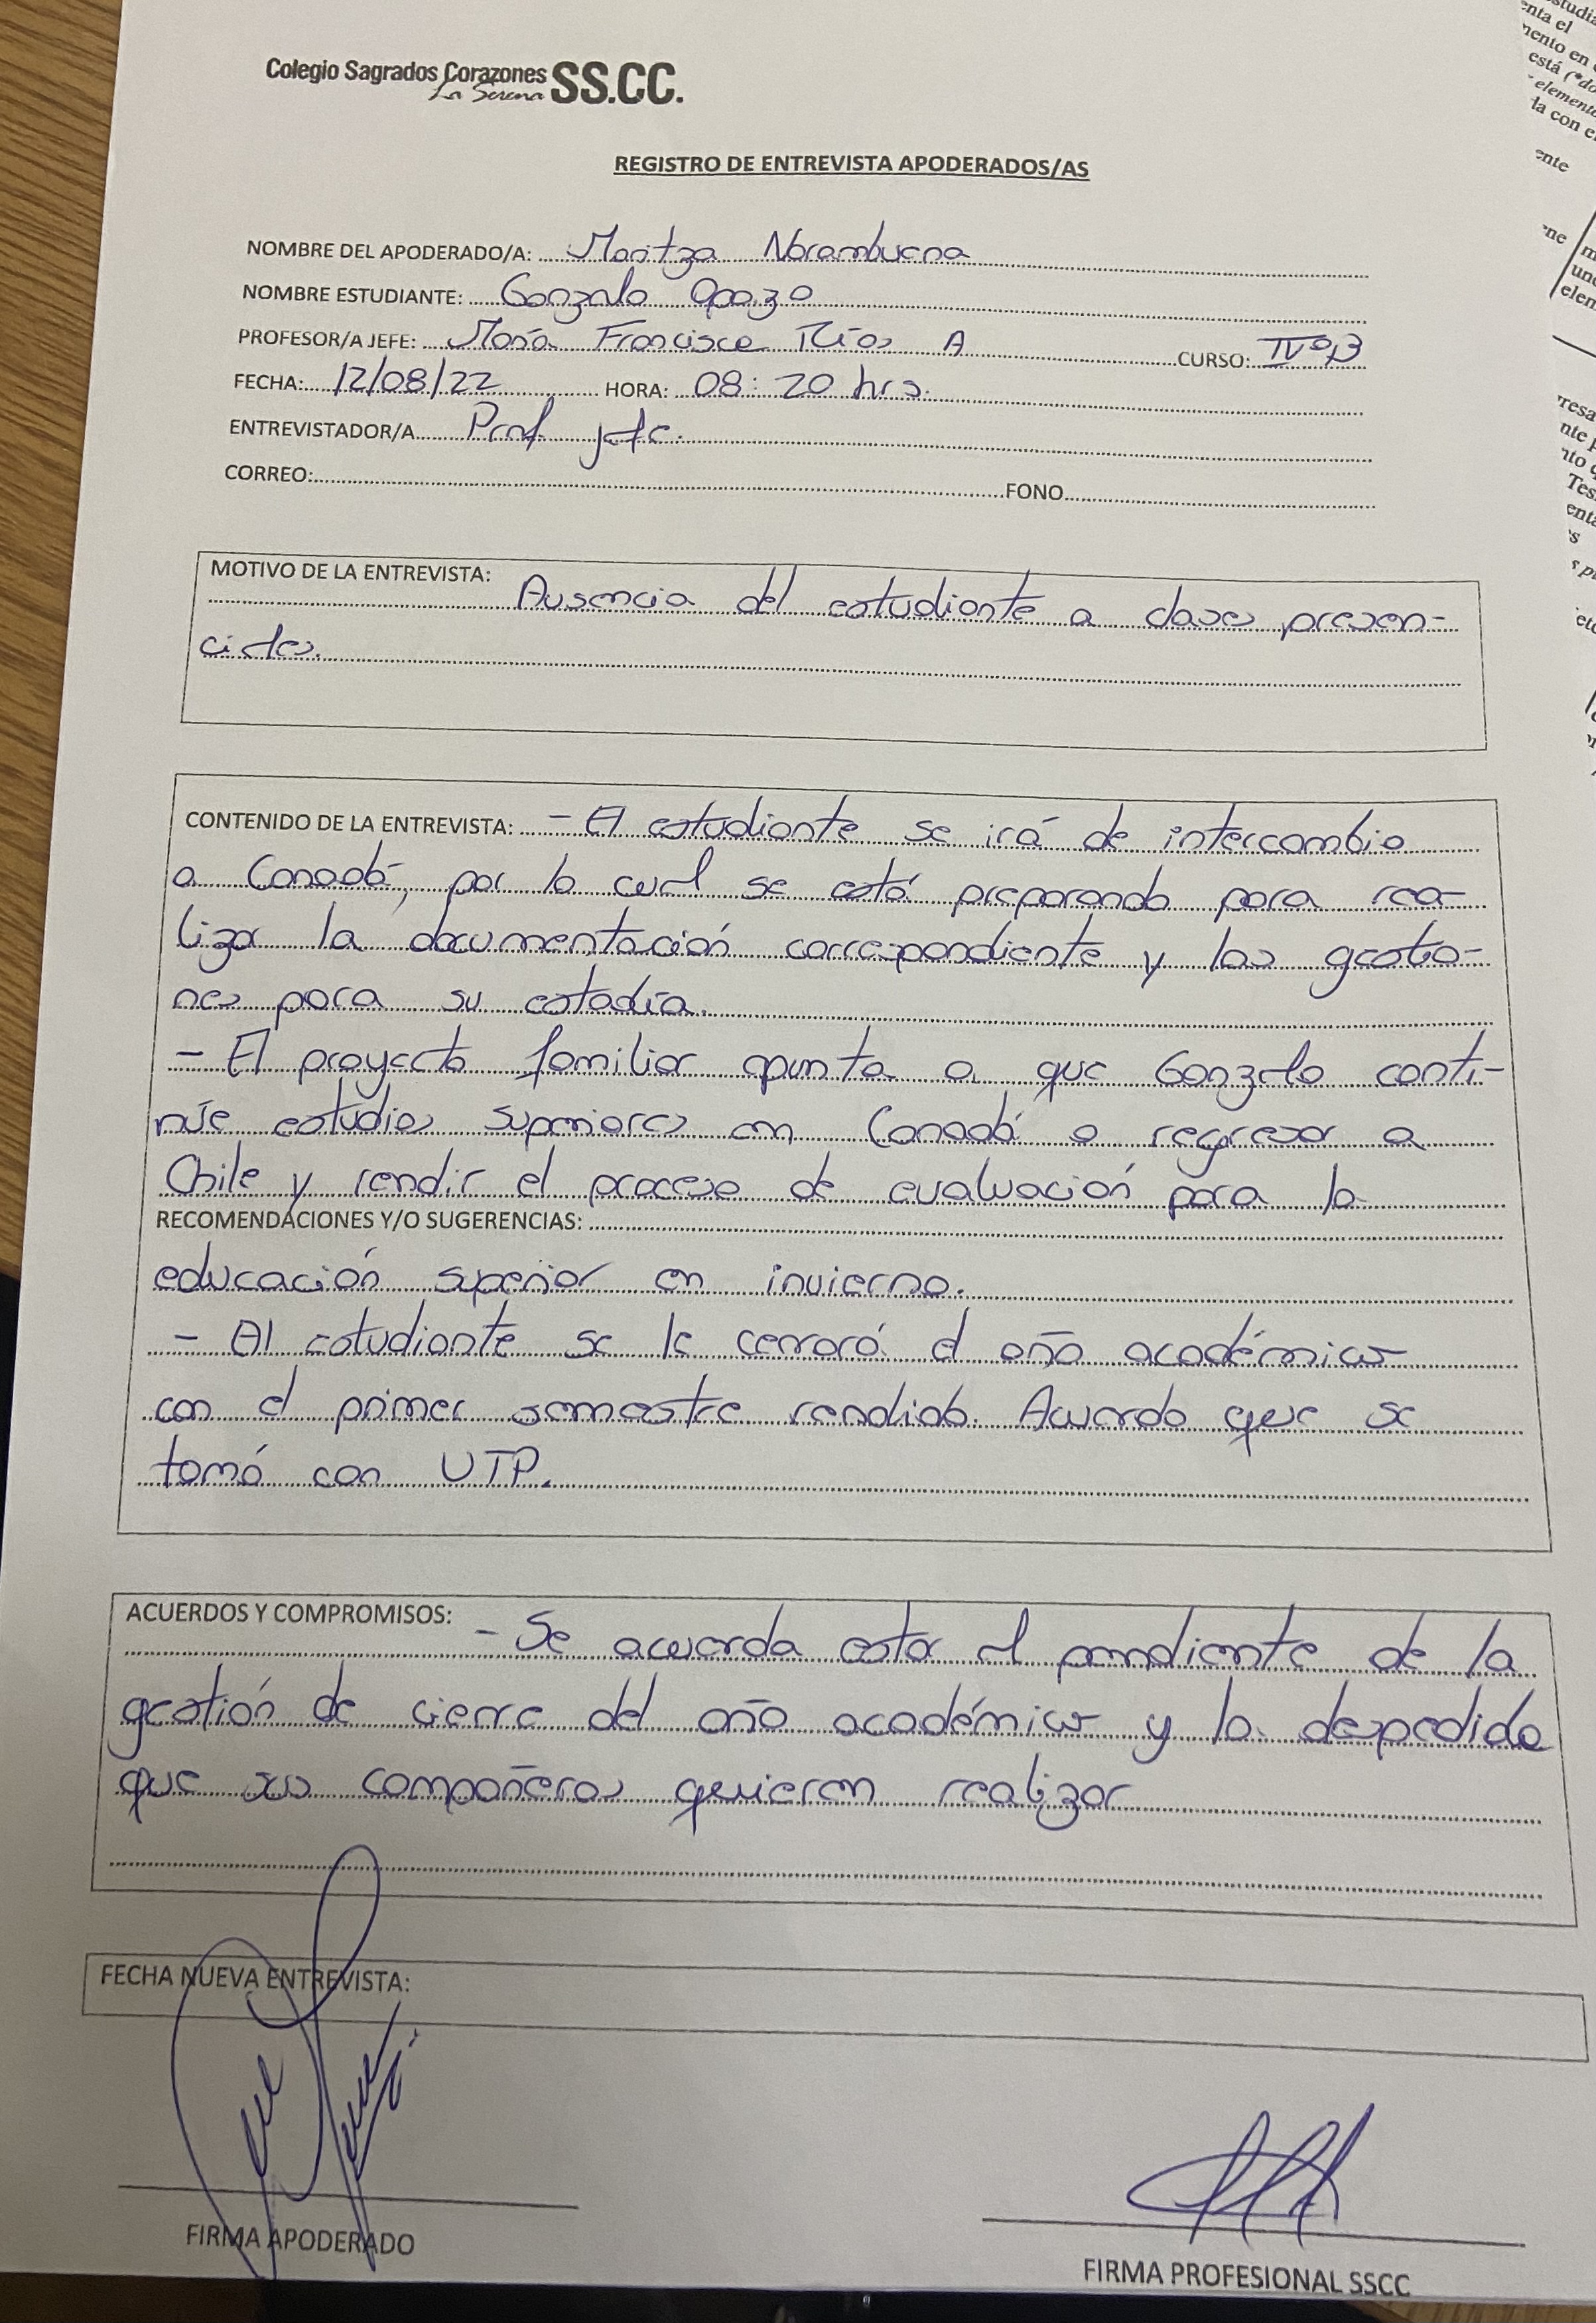 Colegio Sagrados Corazones SS.CC.
La Serena
REGISTRO DE ENTREVISTA APODERADOS/AS
NOMBRE DEL APODERADO/A: Maritza Norambuena
NOMBRE ESTUDIANTE: Gonzalo Opazo
PROFESOR/A JEFE: María Francisca Ríos A CURSO: IVºB
FECHA: 12/08/22 HORA: 08:20 hrs.
ENTREVISTADOR/A Prof. jefe.
CORREO: FONO
MOTIVO DE LA ENTREVISTA: Ausencia del estudiante a clases presen-
ciales.
CONTENIDO DE LA ENTREVISTA: - El estudiante se irá de intercambio
a Canadá, por lo cual se está preparando para rea-
lizar la documentación correspondiente y las gestio-
nes para su estadía.
- El proyecto familiar apunta a que Gonzalo conti-
núe estudios superiores en Canadá o regresar a
Chile y rendir el proceso de evaluación para la
RECOMENDACIONES Y/O SUGERENCIAS:
educación superior en invierno.
- Al estudiante se le cerrará el año académico
con el primer semestre rendido. Acuerdo que se
tomó con UTP.
ACUERDOS Y COMPROMISOS: - Se acuerda estar al pendiente de la
gestión de cierre del año académico y la despedida
que sus compañeros quieren realizar
FECHA NUEVA ENTREVISTA:
FIRMA APODERADO
FIRMA PROFESIONAL SSCC